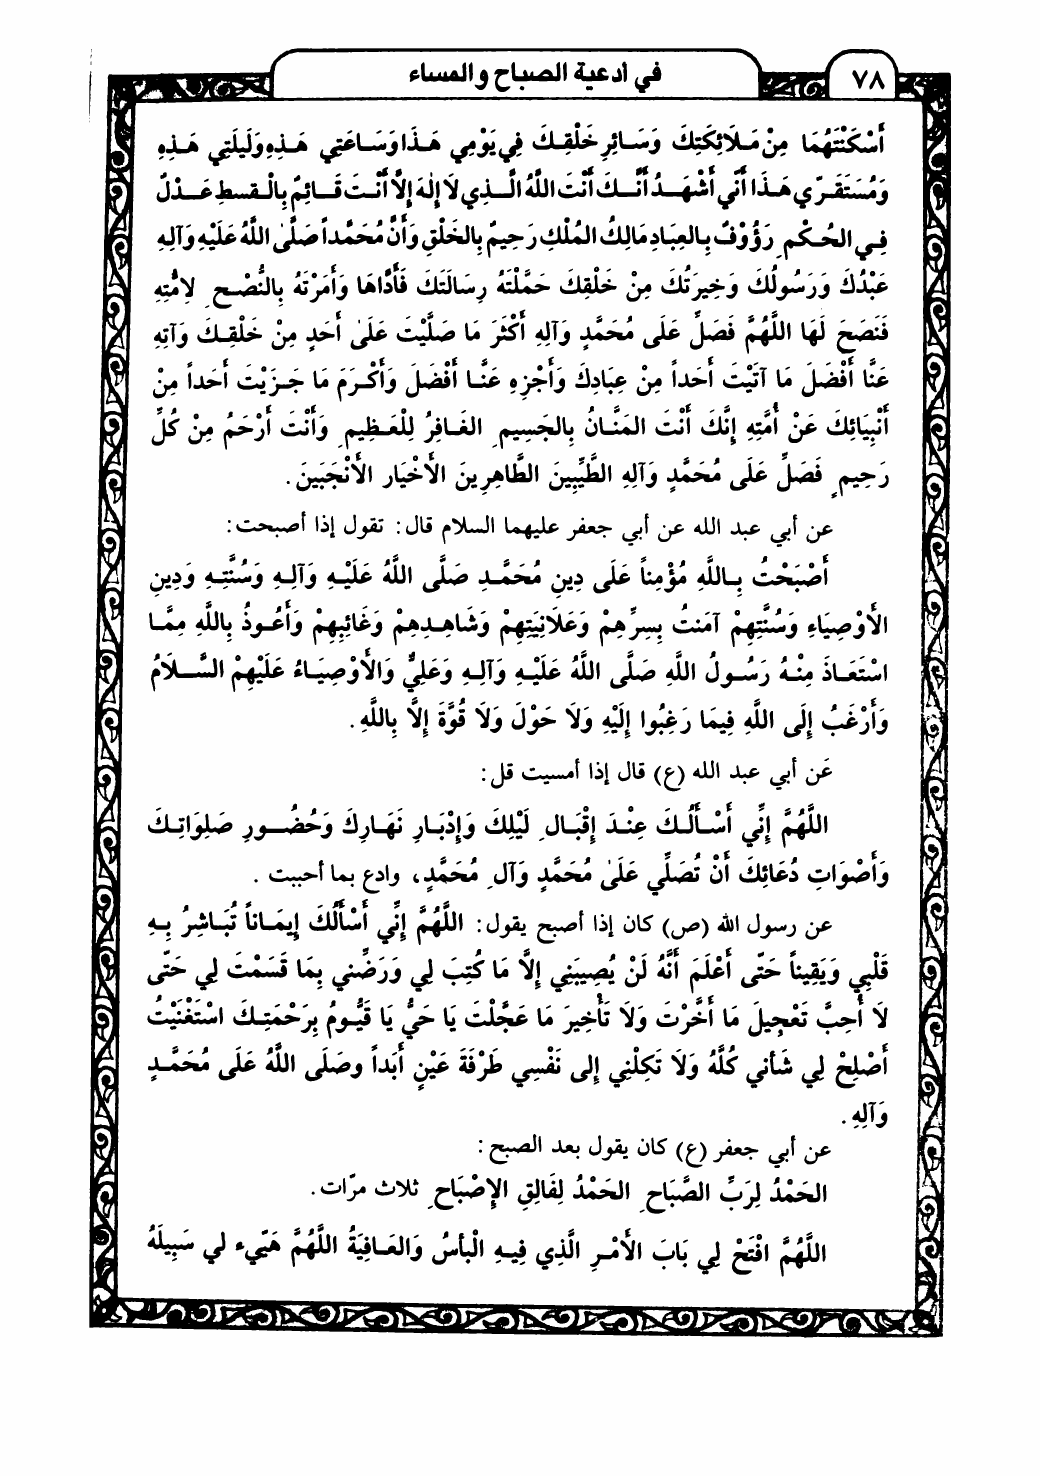 ٧٨
في أدعية الصباح والمساء
أَسْكَنْتَهُمَا مِنْ مَلَائِكَتِكَ وَسَائِرِ خَلْقِكَ فِي يَوْمِي هَذَا وَسَاعَتِي هَذِهِ وَلَيْلَتِي هَذِهِ
وَمُسْتَقَرِّي هَذَا أَنِّي أَشْهَدُ أَنَّكَ أَنْتَ اللَّهُ الَّذِي لَا إِلَهَ إِلَّا أَنْتَ قَائِمٌ بِالْقِسطِ عَدْلٌ
فِي الحُكْمِ رَؤُوْفٌ بِالعِبَادِ مَالِكُ المُلْكِ رَحِيمٌ بِالخَلْقِ وَأَنَّ مُحَمَّداً صَلَّى اللَّهُ عَلَيْهِ وَآلِهِ
عَبْدُكَ وَرَسُولُكَ وَخِيرَتُكَ مِنْ خَلْقِكَ حَمَّلْتَهُ رِسَالَتَكَ فَأَدَّاهَا وَأَمَرْتَهُ بِالنُّصْحِ لِأُمَّتِهِ
فَنَصَحَ لَهَا اللَّهُمَّ فَصَلِّ عَلَى مُحَمَّدٍ وَآلِهِ أَكْثَرَ مَا صَلَّيْتَ عَلَىٰ أَحَدٍ مِنْ خَلْقِكَ وَآتِهِ
عَنَّا أَفْضَلَ مَا آتَيْتَ أَحَداً مِنْ عِبَادِكَ وَأَجْزِهِ عَنَّا أَفْضَلَ وَأَكْرَمَ مَا جَزَيْتَ أَحَداً مِنْ
أَنْبِيَائِكَ عَنْ أُمَّتِهِ إِنَّكَ أَنْتَ المَنَّانُ بِالجَسِيمِ الغَافِرُ لِلْعَظِيمِ وَأَنْتَ أَرْحَمُ مِنْ كُلِّ
رَحِيمٍ فَصَلِّ عَلَى مُحَمَّدٍ وَآلِهِ الطَّيِّبِينَ الطَّاهِرِينَ الأَخْيَارِ الأَنْجَبَينَ.
عن أبي عبد الله عن أبي جعفر عليهما السلام قال: تقول إذا أصبحت:
أَصْبَحْتُ بِاللَّهِ مُؤْمِناً عَلَى دِينِ مُحَمَّدٍ صَلَّى اللَّهُ عَلَيْهِ وَآلِهِ وَسُنَّتِهِ وَدِينِ
الأَوْصِيَاءِ وَسُنَّتِهِمْ آمَنتُ بِسِرِّهِمْ وَعَلَانِيَتِهِمْ وَشَاهِدِهِمْ وَغَائِبِهِمْ وَأَعُوذُ بِاللَّهِ مِمَّا
اسْتَعَاذَ مِنْهُ رَسُولُ اللَّهِ صَلَّى اللَّهُ عَلَيْهِ وَآلِهِ وَعَلِيٌّ وَالأَوْصِيَاءُ عَلَيْهِمْ السَّلَامُ
وَأَرْغَبُ إِلَى اللَّهِ فِيمَا رَغِبُوا إِلَيْهِ وَلَا حَوْلَ وَلَا قُوَّةَ إِلَّا بِاللَّهِ.
عَن أبي عبد الله (ع) قال إذا أمسيت قل:
اللَّهُمَّ إِنِّي أَسْأَلُكَ عِنْدَ إِقْبَالِ لَيْلِكَ وَإِدْبَارِ نَهَارِكَ وَحُضُورِ صَلِوَاتِكَ
وَأَصْوَاتِ دُعَائِكَ أَنْ تُصَلِّي عَلَىٰ مُحَمَّدٍ وَآلِ مُحَمَّدٍ، وادع بما أحببت .
عن رسول الله (ص) كان إذا أصبح يقول: اللَّهُمَّ إِنِّي أَسْأَلُكَ إِيمَاناً تُبَاشِرُ بِهِ
قَلْبِي وَيَقِيناً حَتَّى أَعْلَمَ أَنَّهُ لَنْ يُصِيبَنِي إِلَّا مَا كُتِبَ لِي وَرَضِّنِي بِمَا قَسَمْتَ لِي حَتَّى
لَا أُحِبَّ تَعْجِيلَ مَا أَخَّرْتَ وَلَا تَأْخِيرَ مَا عَجَّلْتَ يَا حَيُّ يَا قَيُّومُ بِرَحْمَتِكَ اسْتَغْنَيْتُ
أَصْلِحْ لِي شَأْنِي كُلَّهُ وَلَا تَكِلْنِي إِلى نَفْسِي طَرْفَةَ عَيْنٍ أَبَداً وصَلَى اللَّهُ عَلَى مُحَمَّدٍ
وَآلِهِ.
عن أبي جعفر (ع) كان يقول بعد الصبح:
الحَمْدُ لِرَبِّ الصَّبَاحِ الحَمْدُ لِفَالِقِ الإِصْبَاحِ ثلاث مرّات.
اللَّهُمَّ افْتَحْ لِي بَابَ الأَمْرِ الَّذِي فِيهِ الْبأسُ وَالعَافِيَةُ اللَّهُمَّ هَيِّيء لي سَبِيلَهُ